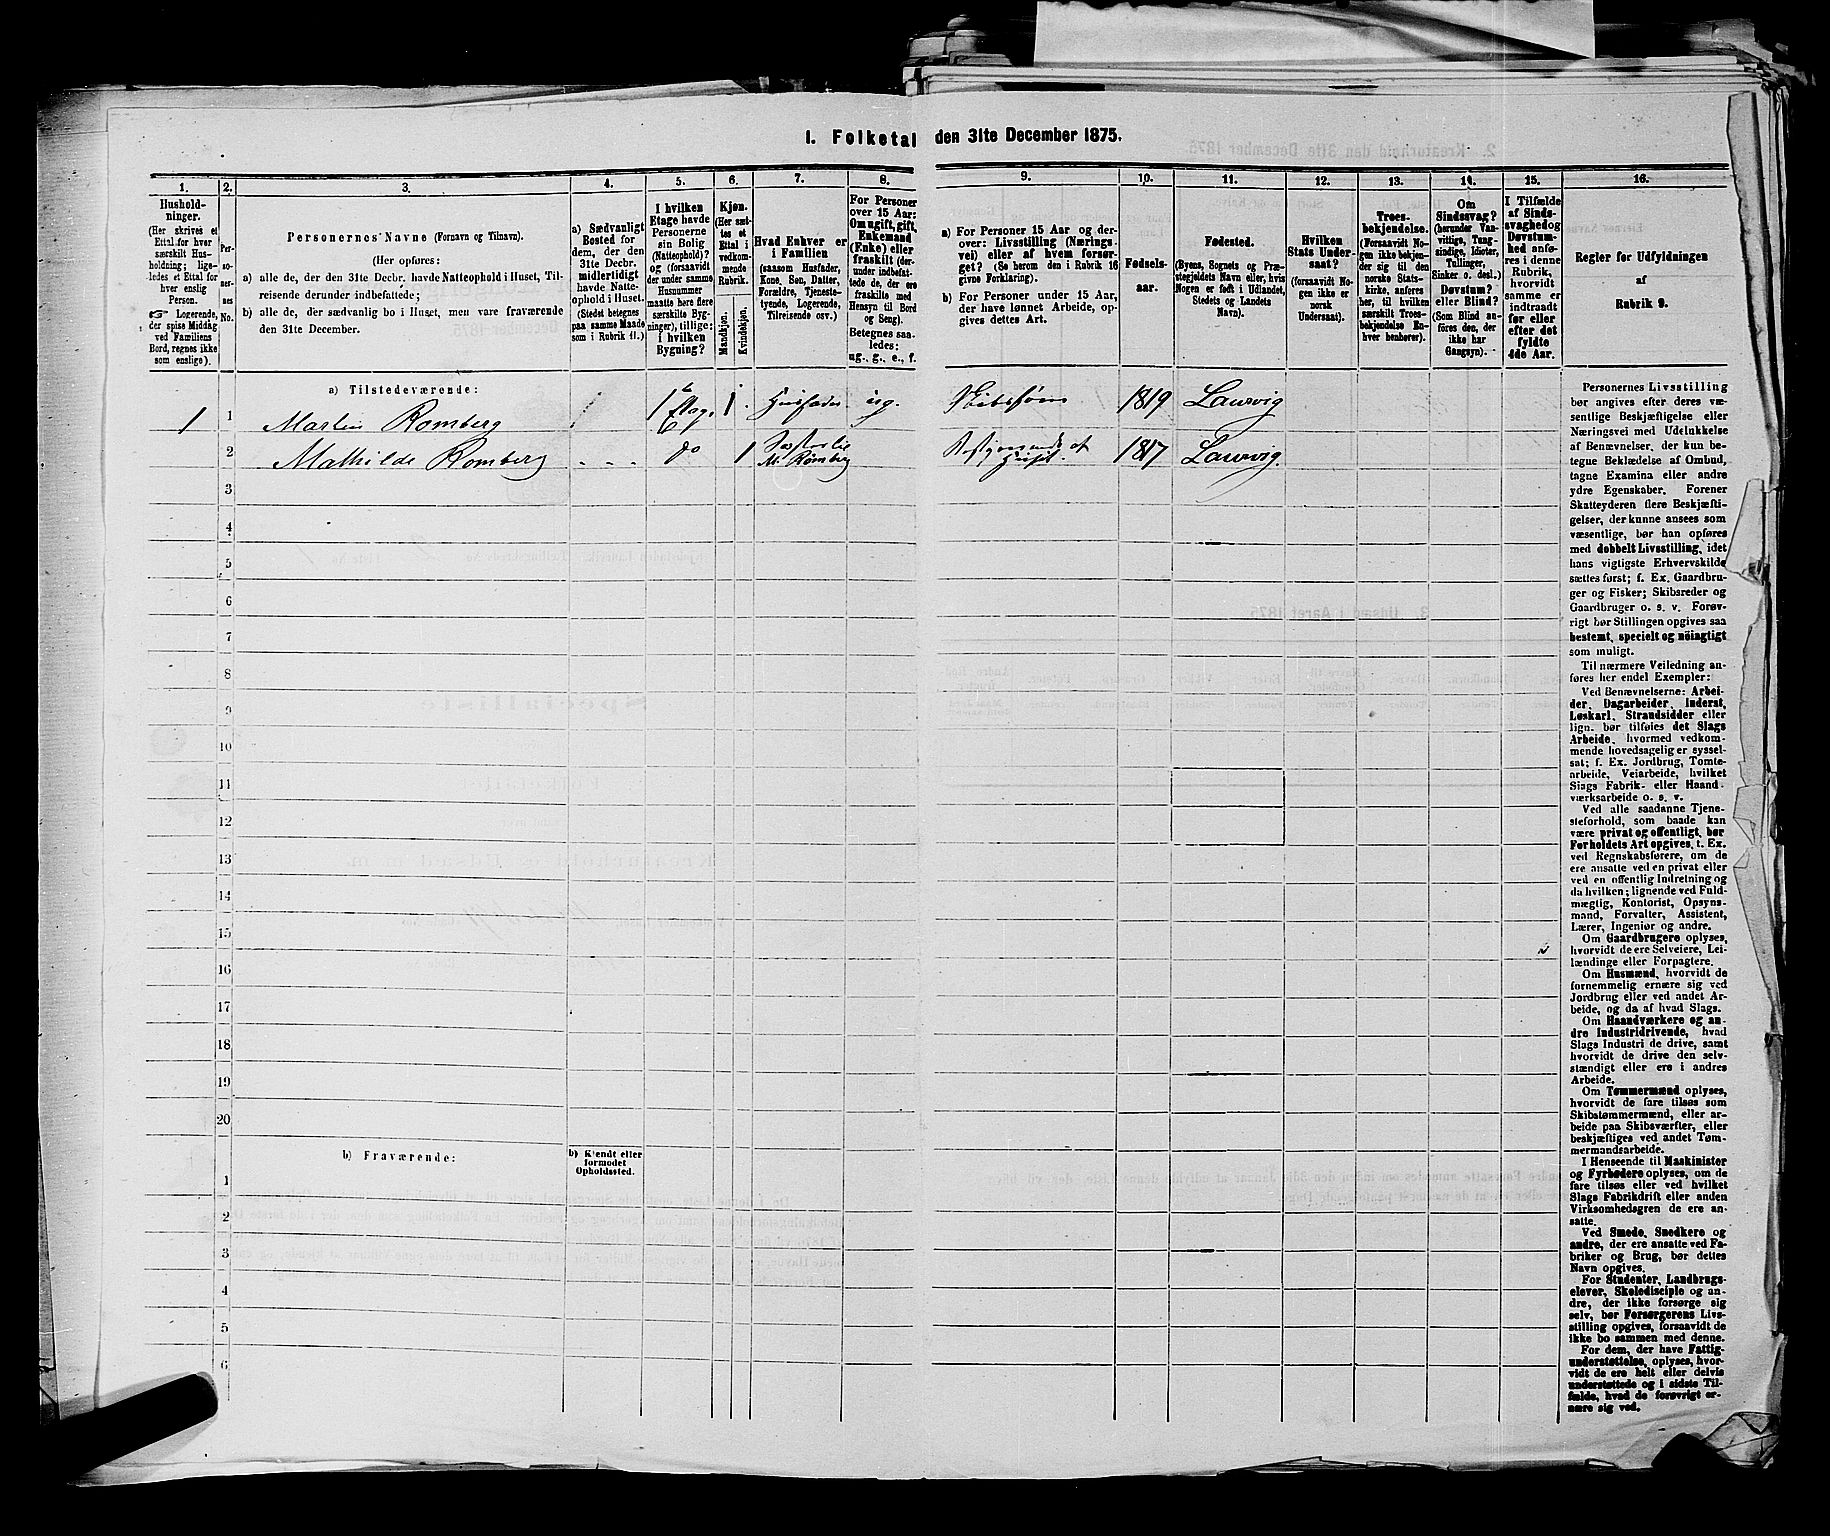 1. Folketal den 31te December 1875.
1. 2. 3. 4. 5. 6. 7. 8. 9. 10. 11. 12. 13. 14. 15. 16.
Hushold-
ninger.
(Her skrives et
Ettal for hver
særskilt Hus-
holdning; lige-
ledes et Ettal for
hver enslig
Person.
☞ Logerende,
der spise Middag
ved Familiens
Bord, regnes ikke
som enslige).
Per-
so-
ner-
nes
No.
Personernes Navne (Fornavn og Tilnavn).
(Her opføres:
a) alle de, der den 31te Decbr. havde Natteophold i Huset, Til-
reisende derunder indbefattede;
b) alle de, der sædvanlig bo i Huset, men vare fraværende
den 31te December.
a) Sædvanligt
Bosted for
dem, der den
31te Decbr.
midlertidigt
havde Natte-
ophold i Huset.
(Stedet betegnes
paa samme Maade
som i Rubrik 11.)
I hvilken
Etage havde
Personerne
sin Bolig
(Natteophold)?
og (forsaavidt
der under samme
Husnummer
maatte høre flere
særskilte Byg-
ninger), tillige:
i hvilken
Bygning?
Kjøn.
(Her sæt-
tes et
Ettal i
vedkom-
mende
Rubrik.
Mandkjøn.
Kvindekjøn.
Hvad Enhver er
i Familien
(saasom Husfader,
Kone, Søn, Datter,
Forældre, Tjeneste-
tyende, Logerende,
Tilreisende osv.)
For Personer
over 15 Aar:
Om ugift, gift,
Enkemand
(Enke) eller
fraskilt (der-
under indbefat-
tede de, der ere
fraskilte med
Hensyn til Bord
og Seng).
Betegnes saa-
ledes:
ug., g., e., f.
a) For Personer 15 Aar og der-
over: Livsstilling (Nærings-
vei) eller af hvem forsør-
get? (Se herom den i Rubrik 16
givne Forklaring).
b) For Personer under 15 Aar,
der have lønnet Arbeide, op-
gives dettes Art.
Fødsels-
aar.
Fødested.
(Byens, Sognets og Præ-
stegjeldets Navn eller, hvis
Nogen er født i Udlandet,
Stedets og Landets
Navn).
Hvilken
Stats Under-
saat?
(forsaavidt No-
gen ikke er
norsk
Undersaat).
Troes-
bekjendelse.
(Forsaavidt No-
gen ikke bekjen-
der sig til den
norske Stats-
kirke, anføres
her, til hvilken
særskilt Troes-
bekjendelse En-
hver henhører).
Om
Sindssvag?
(herunder Van-
vittige, Tung-
sindige, Idioter,
Tullinger,
Sinker o. desl.)
Døvstum?
eller Blind?
(Som Blind an-
føres den, der
ikke har
Gangsyn).
I Tilfælde
af Sinds-
svaghed og
Døvstum-
hed anfø-
res i denne
Rubrik,
hvorvidt
samme er
indtraadt
før eller
efter det
fyldte
4de Aar.
Regler for Udfyldningen
af
Rubrik 9.
a) Tilstedeværende:
1 1 Martin Romberg 1ste Etage 1 Husfader ug. 1819 Laurvig
2 Mathilde Romberg - - - do 1 M. Romberg 1817 Laurvig.
3
4
5
6
7
8
9
10
11
12
13
14
15
16
17
18
19
20
b) Fraværende:
b) Kjendt eller
formodet
Opholdssted.
1
2
3
4
5
6
Personernes Livsstilling
bør angives efter deres væ-
sentlige Beskjæftigelse eller
Næringsvei med Udelukkelse
af Benævnelser, der kun be-
tegne Beklædelse af Ombud,
tagne Examina eller andre
ydre Egenskaber. Forener
Skatteyderen flere Beskjæfti-
gelser, der kunne ansees som
væsentlige, bør han opføres
med dobbelt Livsstilling, idet
hans vigtigste Erhvervskilde
sættes først; f. Ex. Gaardbru-
ger og Fisker; Skibsreder og
Gaardbruger o. s. v. Forøv-
rigt bør Stillingen opgives saa
bestemt, specielt og nøiagtigt
som muligt.
Til nærmere Veiledning an-
føres her endel Exempler:
Ved Benævnelserne: Arbei-
der, Dagarbeider, Inderst,
Løskarl, Strandsidder eller
lign. bør tilføies det Slags
Arbeide, hvormed vedkom-
mende hovedsagelig er syssel-
sat; f. Ex. Jordbrug, Tomte-
arbeide, Veiarbeide, hvilket
Slags Fabrik- eller Haand-
værksarbeide o. s. v.
Ved alle saadanne Tjene-
steforhold, som baade kan
være privat og offentligt, bør
Forholdets Art opgives, t. Ex.
ved Regnskabsførere, om de
ere ansatte ved en privat eller
ved en offentlig Indretning og
da hvilken; lignende ved Fuld-
mægtig, Kontorist, Opsyns-
mand, Forvalter, Assistent,
Lærer, Ingeniør og andre.
Om Gaardbrugere oplyses,
hvorvidt de ere Selveiere, Lei-
lændinge eller Forpagtere.
Om Husmænd, hvorvidt de
fornemmelig ernære sig ved
Jordbrug eller ved andet Ar-
beide, og da af hvad Slags.
Om Haandværkere og an-
dre Industridrivende, hvad
Slags Industri de drive, samt
hvorvidt de drive den selv-
stændigt eller ere i andres
Arbeide.
Om Tømmermænd oplyses,
hvorvidt de fare tilsøs som
Skibstømmermænd, eller ar-
beide paa Skibsværfter, eller
beskjæftiges ved andet Tøm-
mermandsarbeide.
I Henseende til Maskinister
og Fyrbødere oplyses, om de
fare tilsøs eller ved hvilket
Slags Fabrikdrift eller anden
Virksomhedsgren de ere an-
satte.
Ved Smede, Snedkere og
andre, der ere ansatte ved Fa-
briker og Brug, bør dettes
Navn opgives.
For Studenter, Landbrugs-
elever, Skoledisciple og an-
dre, der ikke forsørge sig
selv, bør Forsørgerens Livs-
stilling opgives, forsaavidt de
ikke bo sammen med denne.
For dem, der have Fattig-
understøttelse, oplyses, hvor-
vidt de ere helt eller delvis
understøttede og i sidste Til-
fælde, hvad de forøvrigt er-
nære sig ved.